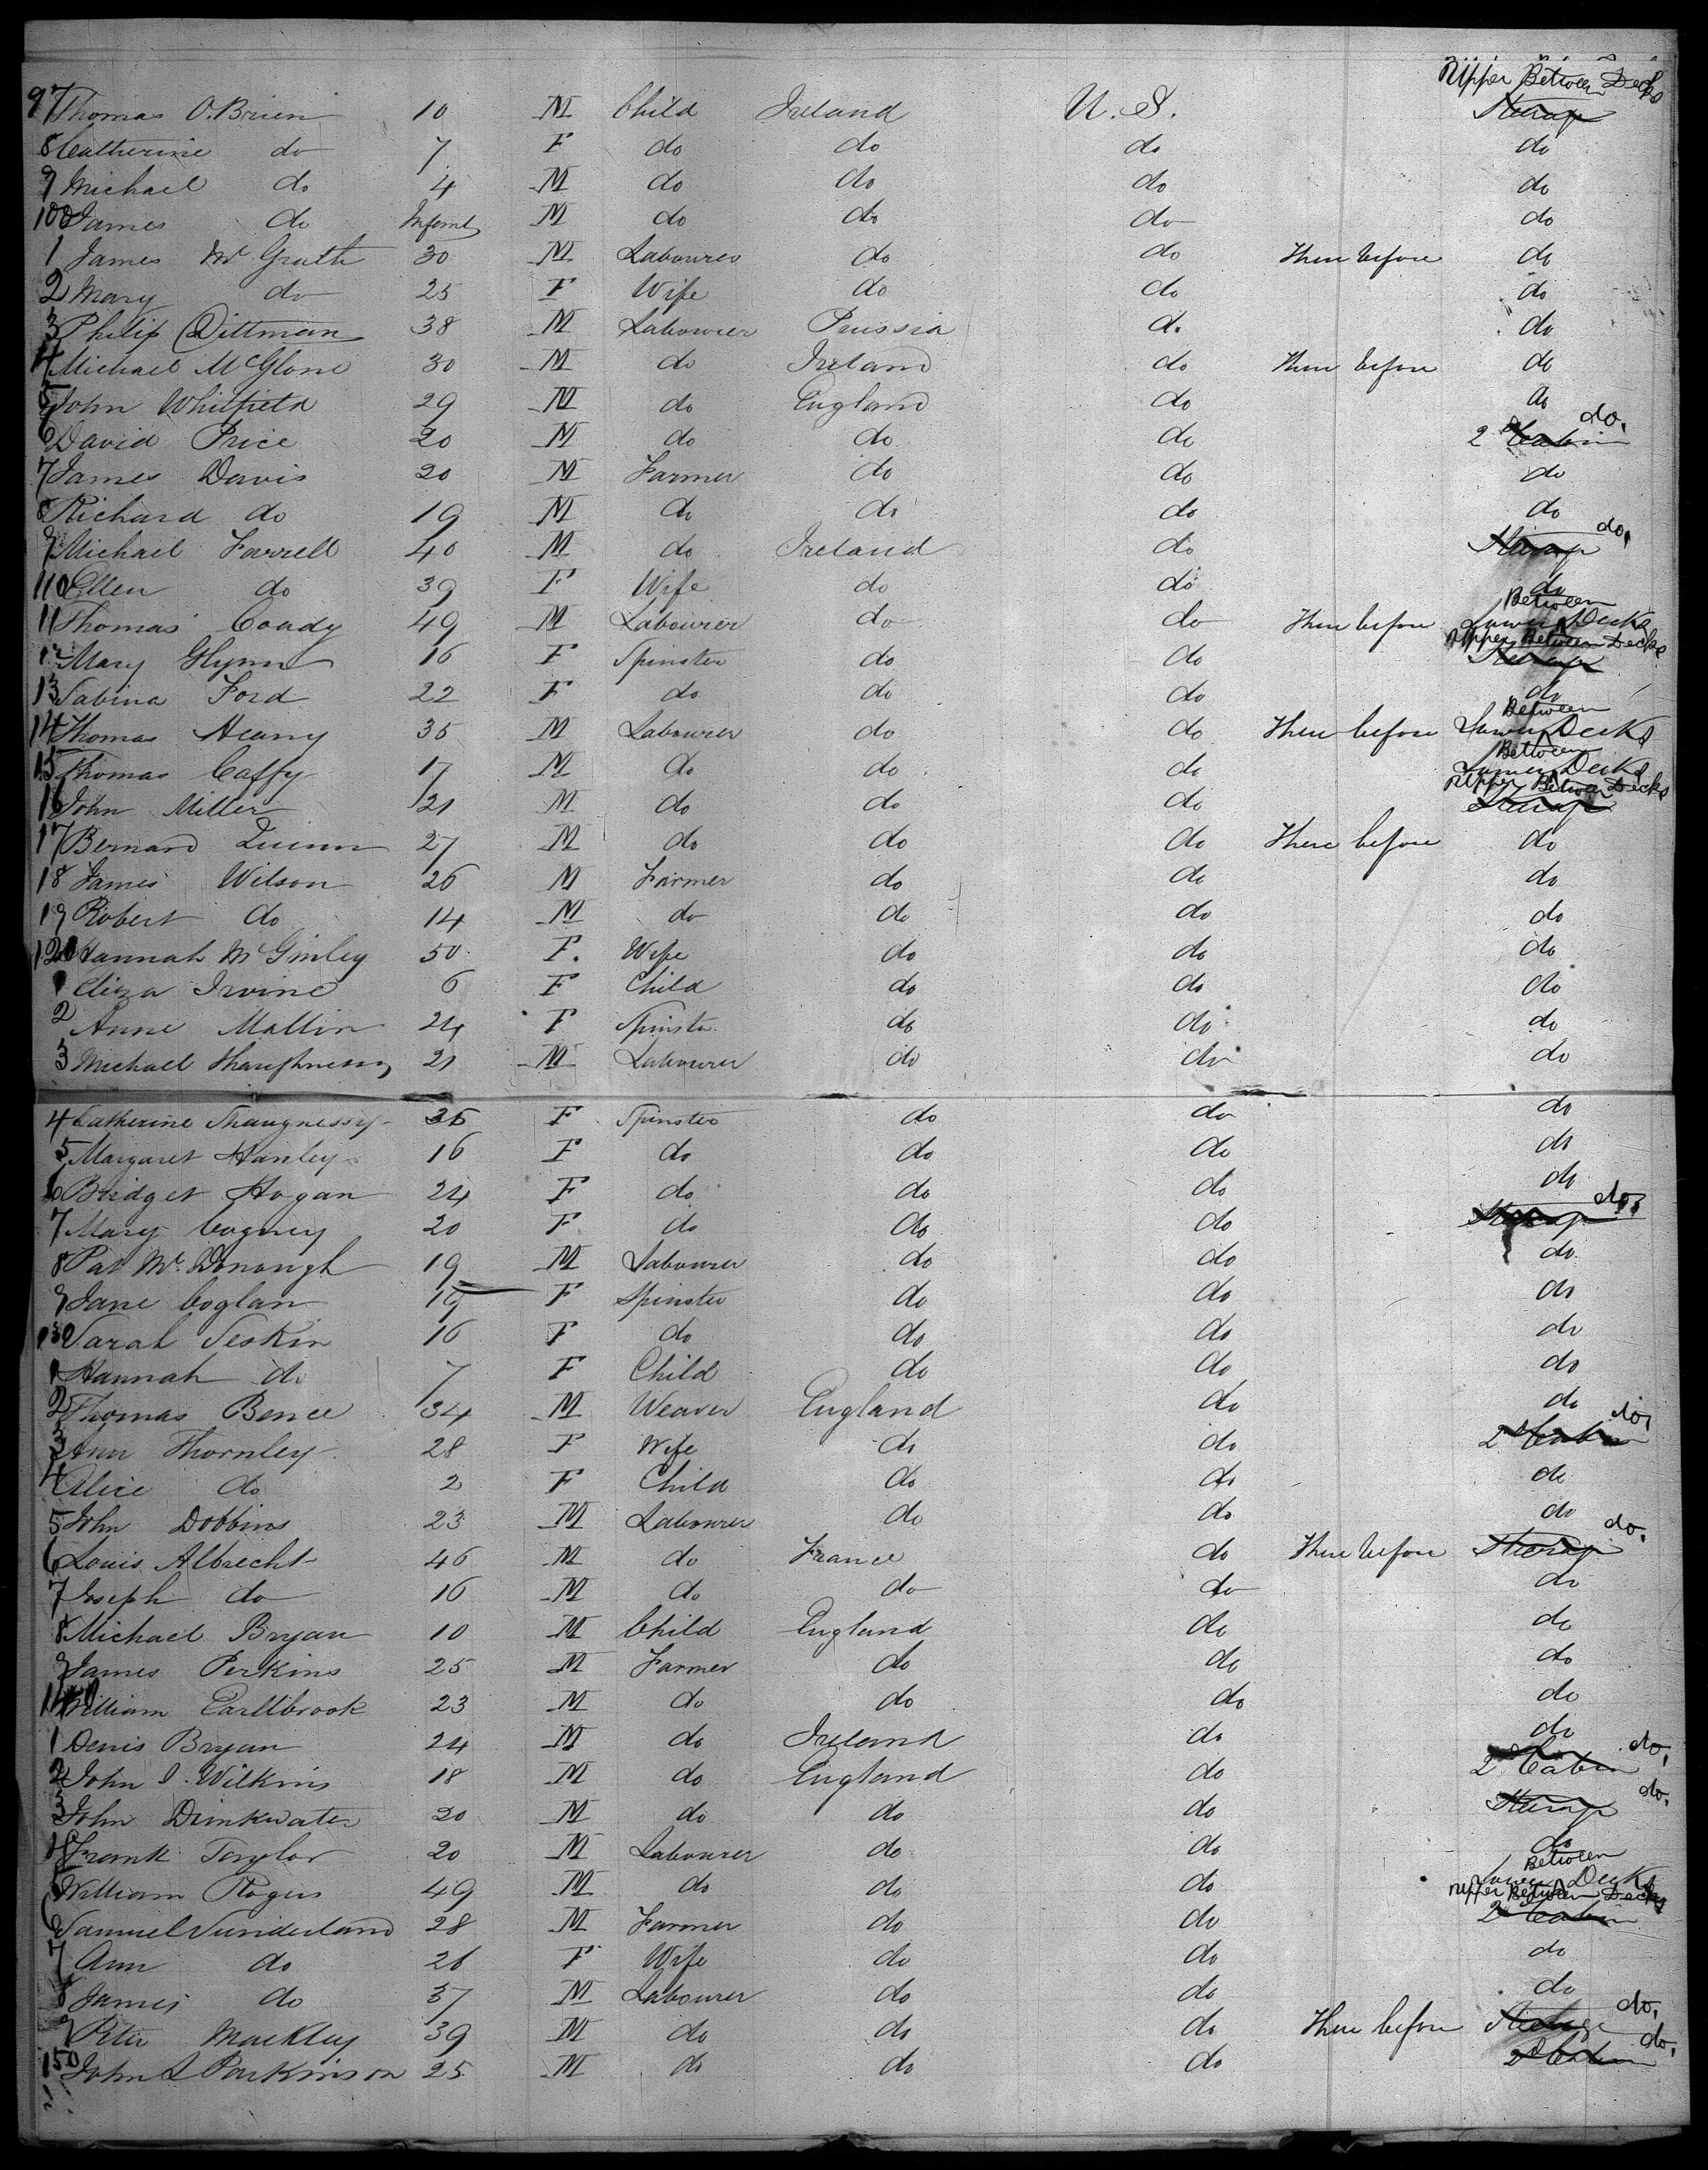 Upper Between Decks
97 Thomas O.Brien 10 M Child Ireland U. S. Steerage
8 Catherine do 7 F do do do do
9 Michael do 4 M do do do do
100 James do Infant M do do do do
1 James McGrath 30 M Labourer do do There before do
2 Mary do 25 F Wife do do do
3 Philip Dittman 38 M Labourer Prussia do do
4 Michael McGlone 30 M do Ireland do There before do
5 John Whitfield 29 M do England do do
6 David Price 20 M do do do 2d Cabin do.
7 James Davis 20 M Farmer do do do
8 Richard do 19 M do do do do
9 Michael Farrell 40 M do Ireland do Steerage do.
110 Ellen do 39 F Wife do do do
11 Thomas Coady 49 M Labourer do do There before Lower Between Decks
12 Mary Glynn 16 F Spinster do do Steerage Upper Between Decks
13 Sabina Ford 22 F do do do do
14 Thomas Heany 35 M Labourer do do There before Lower Between Decks
15 Thomas Caffy 17 M do do do Lower Between Decks
16 John Miller 21 M do do do Steerage Upper Between Decks
17 Bernard Quinn 27 M do do do There before do
18 James Wilson 26 M Farmer do do do
19 Robert do 14 M do do do do
120 Hannah McGinley 50 F. Wife do do do
1 Eliza Irvine 6 F Child do do do
2 Anne Mallin 24 F Spinster do do do
3 Michael Shaughnessy 21 M Labourer do do do
4 Catherine Shaugnessy 35 F Spinster do do do
5 Margaret Hanley 16 F do do do do
6 Bridget Hogan 24 F do do do do
7 Mary Cogney 20 F do do do Steerage do.
8 Pat McDonough 19 M Labourer do do do
9 Jane Coglan 19 F Spinster do do do
130 Sarah Seskin 16 F do do do do
1 Hannah do 7 F Child do do do
2 Thomas Bence 34 M Weaver England do do
3 Ann Thornley 28 F Wife do do 2d Cabin do.
4 Alice do 2 F Child do do do
5 John Dobbins 23 M Labourer do do do
6 Louis Albrecht 46 M do France do There before Steerage do.
7 Joseph do 16 M do do do do
8 Michael Bryan 10 M Child England do do
9 James Perkins 25 M Farmer do do do
140 William Earllbrook 23 M do do do do
1 Denis Bryan 24 M do Ireland do do
2 John J. Wilkins 18 M do England do 2d Cabin do.
3 John Drinkwater 20 M do do do Steerage do.
4 Frank Taylor 20 M Labourer do do do
5 William Rogers 49 M do do do Lower Between Decks
6 Samuel Sunderland 28 M Farmer do do 2d Cabin Upper Between Decks
7 Ann do 26 F Wife do do do
8 James do 37 M Labourer do do do
9 Peter Mackley 39 M do do do There before Steerage do.
150 John S Parkinson 25 M do do do 2d Cabin do.